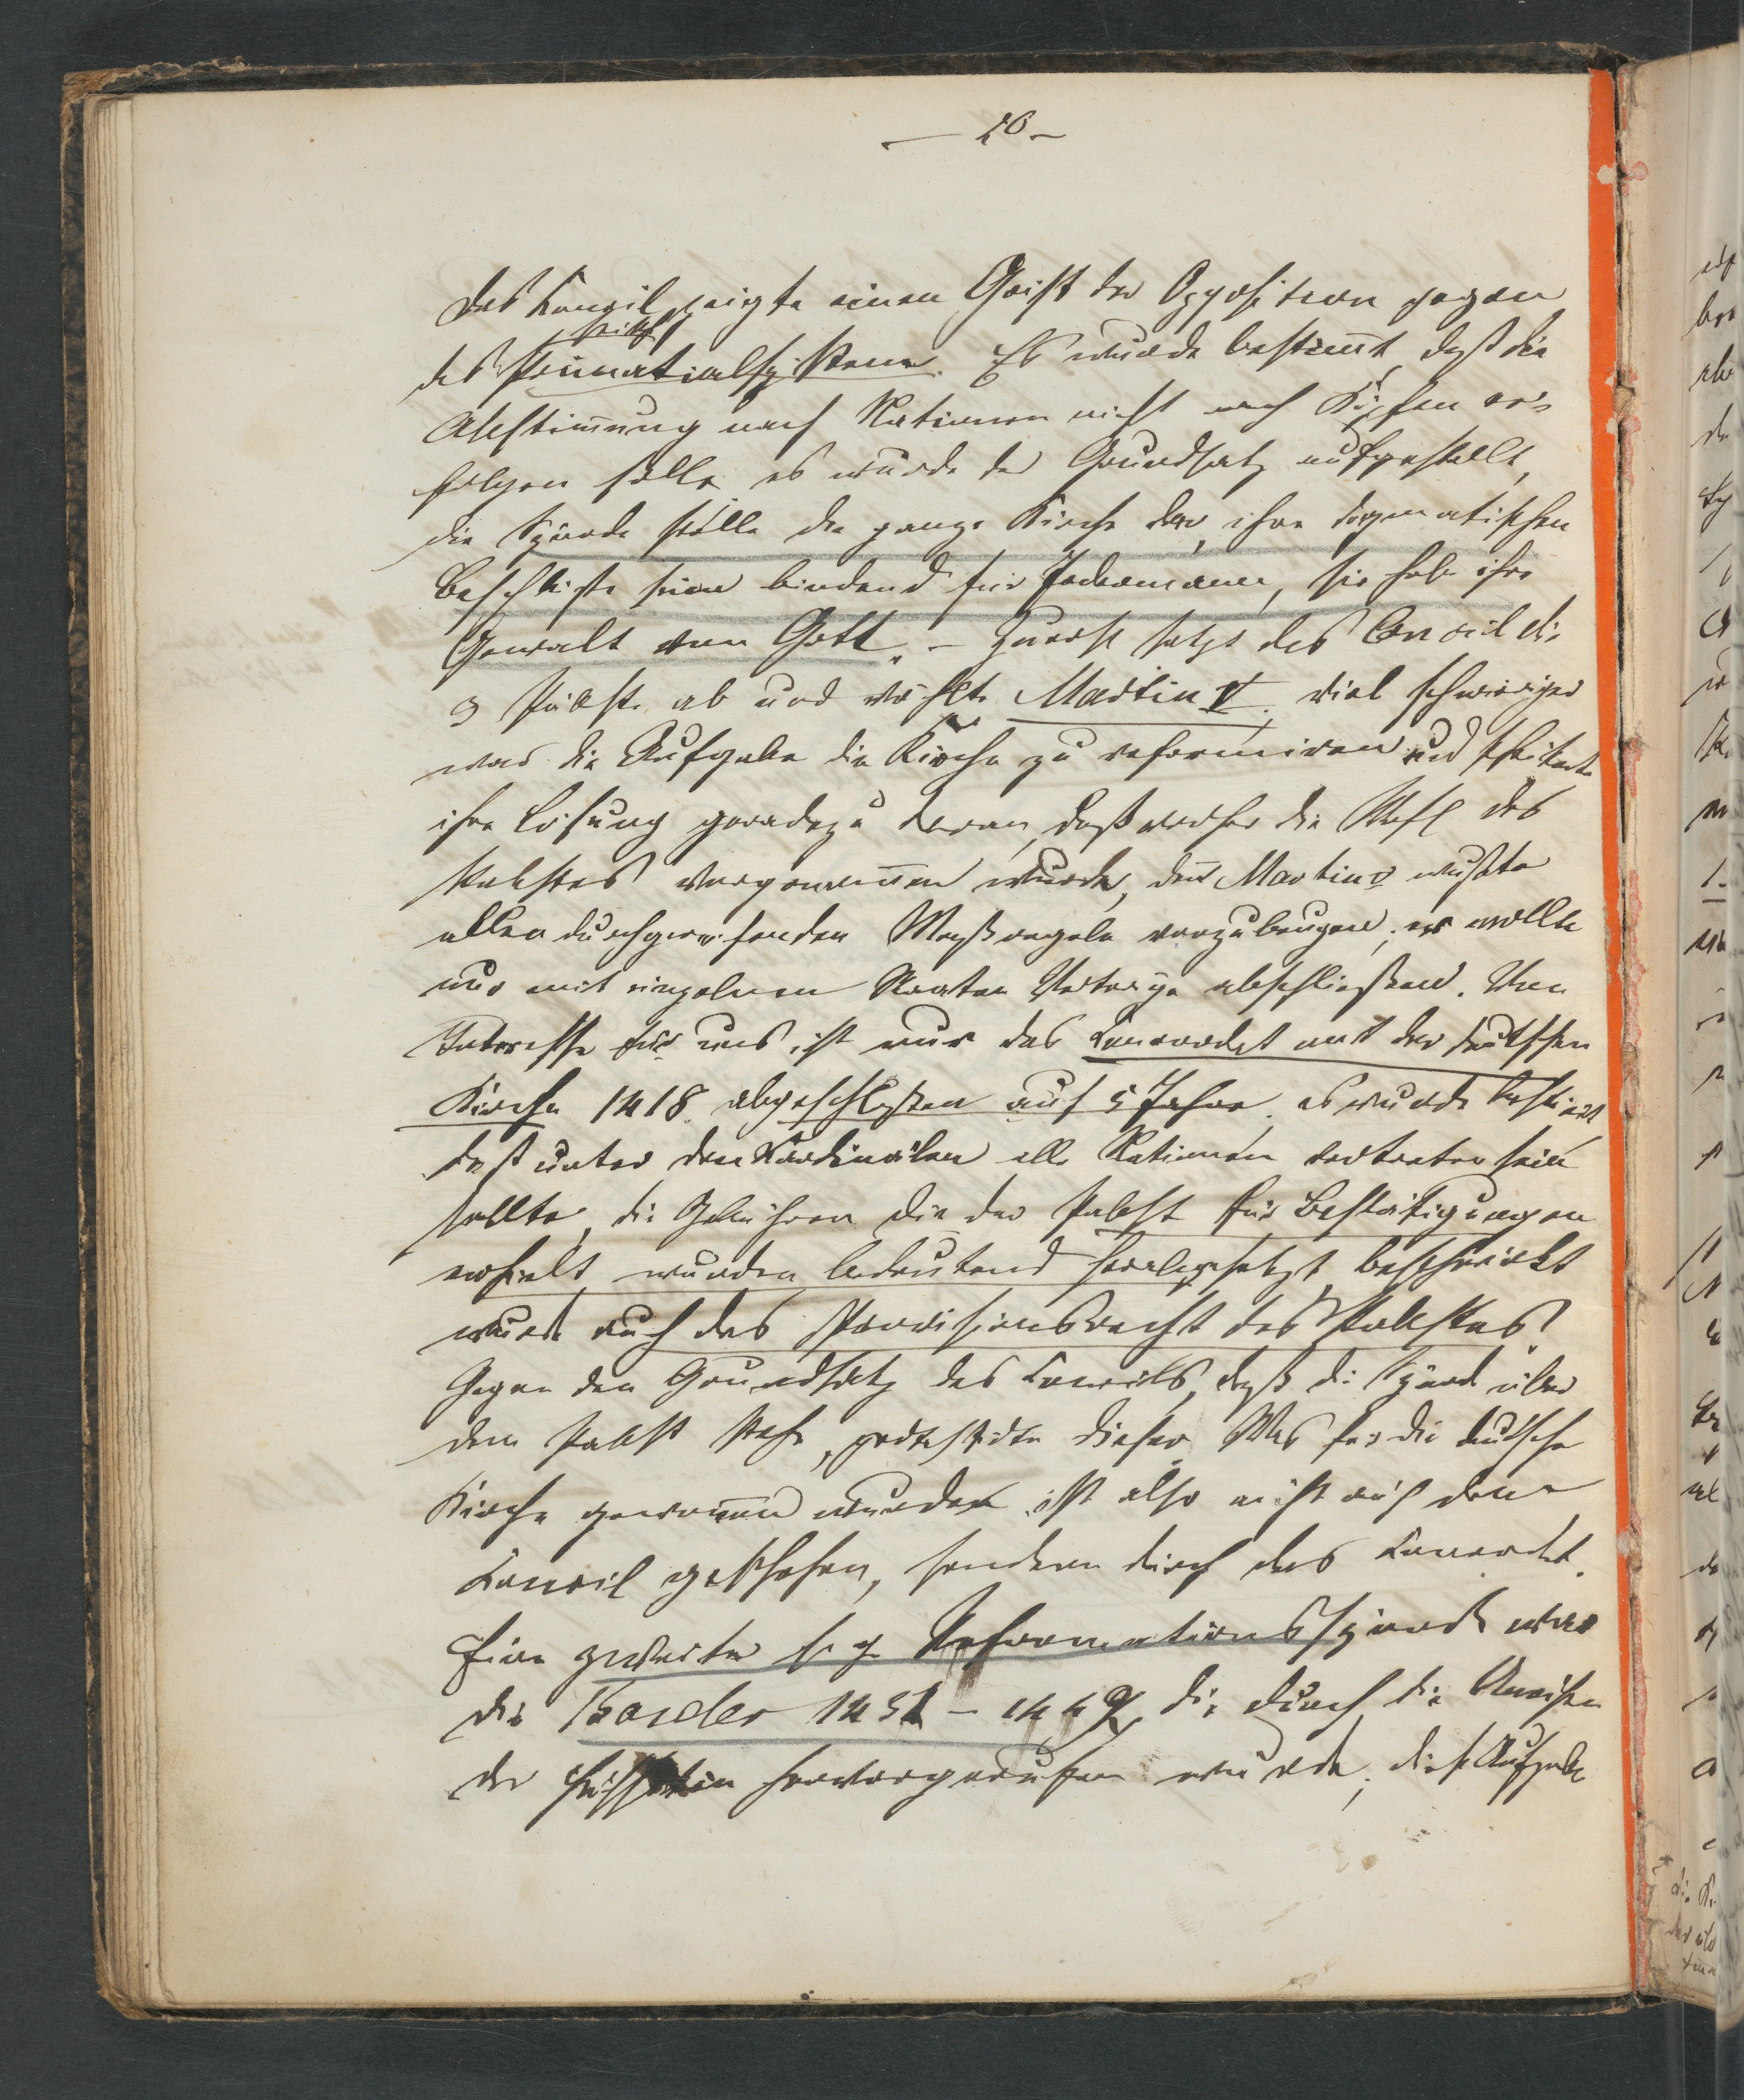 — 20 —
Das Konzil zeigte einen Geist der Opposition gegen
das Primatialsystem. Es wurde bestim̅t, daß die
Abstim̅ung nach Nationen nicht nach Köpfen er-
folgen solle, es wurde der Grundsatz aufgestellt,
die Synode stelle die ganze Kirche dar, ihre dogmatischen
Beschlüsse seien bindend für Jedermann, sie habe ihre
Gewalt von Gott. – Zuerst setzt das Concil die
3 Päbste ab und wählte Martin V. viel schwieriger
war die Aufgabe die Kirche zu reformiren und scheiterte
ihre Lösung geradezu daran, daß vorher die Wahl des
Pabstes vorgenom̅en wurde, den̅ Martin V wußte
allen durchgreifenden Maßregeln vorzubeugen; er wollte
nur mit einzelnen Staaten Verträge abschließen. Von
Interesse für uns ist nur das Concordat mit der deutschen
Kirche 1418 abgeschlossen auf 5 Jahre. es wurde bestim̅t
daß unter den Kardinälen alle Nationen vertreten sein
sollte, die Gebühren die der Pabst für Bestätigungen
erhielt, wurden bedeutend herabgesetzt, beschränkt
wurde auch das Provisionsrecht des Pabstes.
Gegen den Grundsatz des Koncils, daß die Synode über
dem Pabst stehe, protestirte dieser. Was für die deutsche
Kirche gewonnen wurde, ist also nicht auf dem
Koncil geschehen, sondern durch das Concordat.
Eine zweite sog. Reformationssynode war
die Basler 1431 – 1449, die durch die Unruhen
der Hussiten hervorgerufen wurde; diese Aufgabe